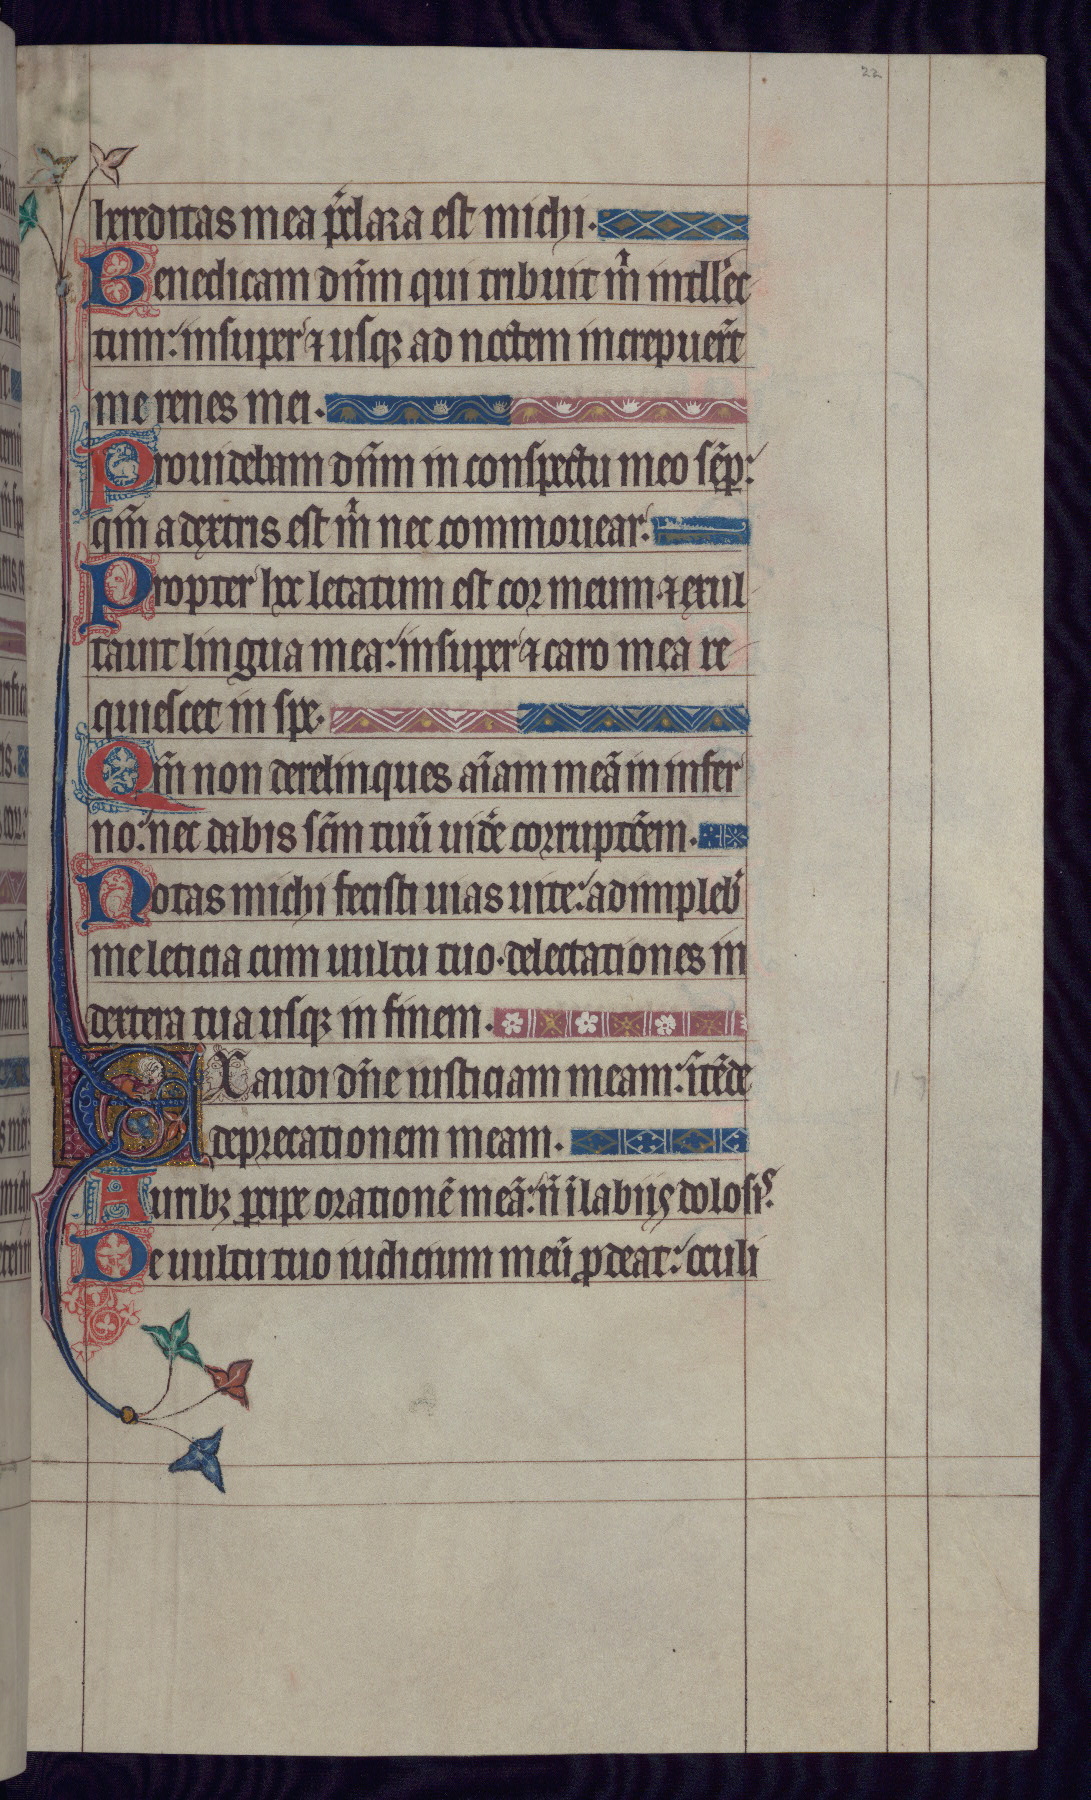 22
hereditas mea p̄clara est michi.
Benedicam dn̄m qui tribuit m̄ intll̄ec
tum: insuper ⁊ usqꝫ ad noctem increpuer̄t
me renes mei.
Prouidebam dn̄m in conspectu meo sēp:
qm̄ a dextris est m̄ nec commouear.
Propter hec letatum est cor meum ⁊ exul
tauit lingua mea: insuper ⁊ caro mea re
quiescet in spe.
Qm̄ non derelinques aīam meā in infer
no: nec dabis sc̄m tuū uidē corruptōem.
Notas michi fecisti uias uite: adimpleb̄
me leticia cum uultu tuo. delectationes in
dextera tua usqꝫ in finem.
EXaudi dn̄e iusticiam meam: ītēde
deprecationem meam.
Auribꝫ ꝑcipe orationē meā: n̄ ī labiis dolosis.
De uultu tuo iudicium meū ꝓdeat: oculi